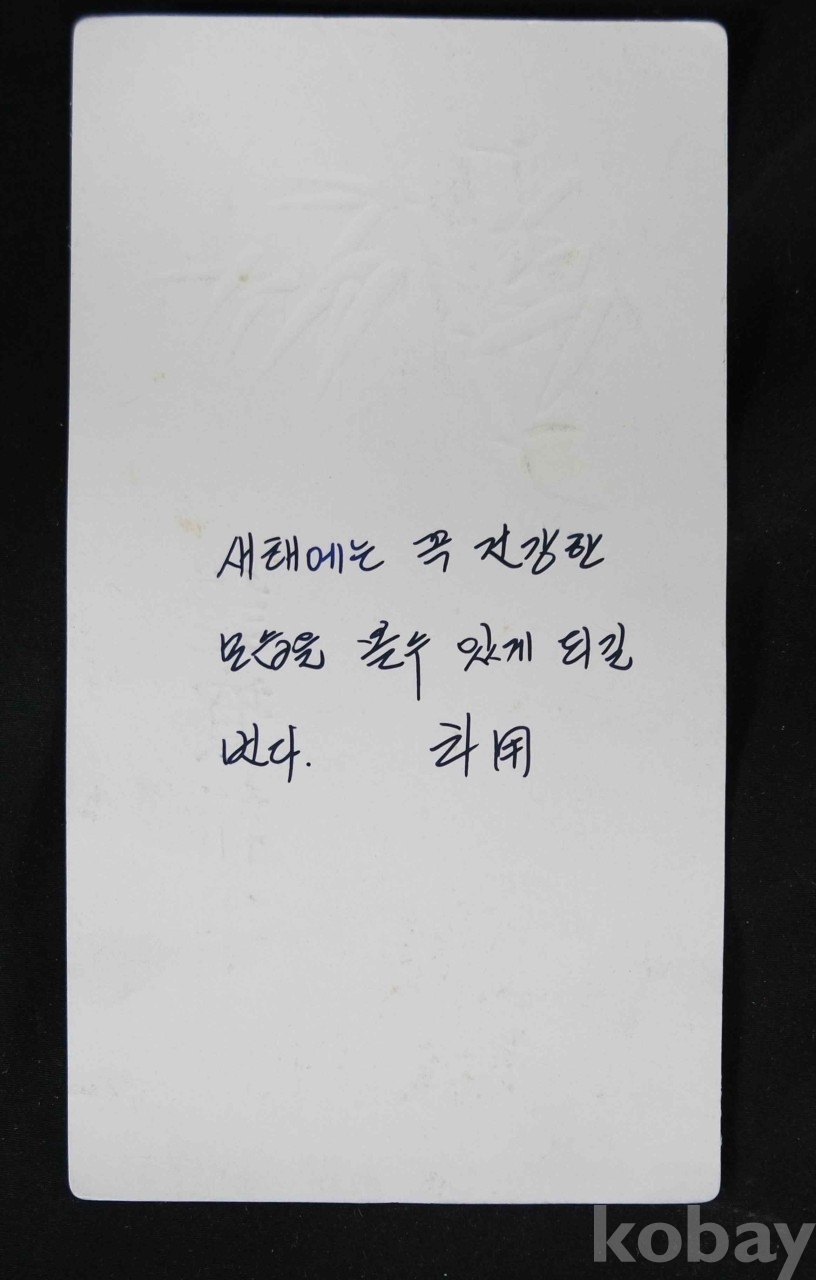 새해에는 꼭 건강한
모습을 볼수 있게 되길
빈다.
kobay